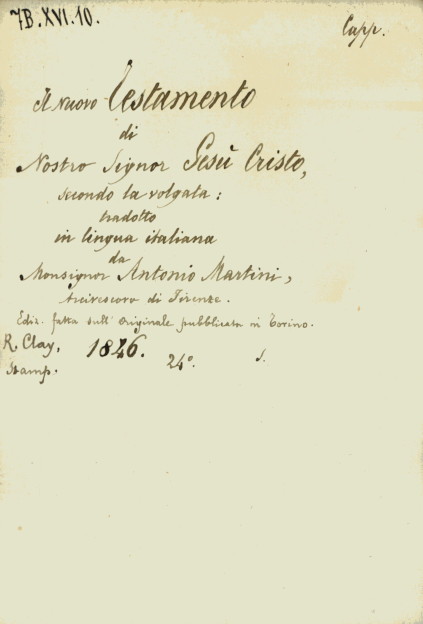 7B.XVI.10.
Capp.
Il nuovo Testamento
di
Nostro Signor Gesù Cristo,
secondo la volgata:
tradotto
in lingua italiana
da
Monsignor Antonio Martini,
di Firenze.
Ediz. fatta sull' originale pubblicata in Torino.
R. Clay, 1846. 24°.
Stamp.